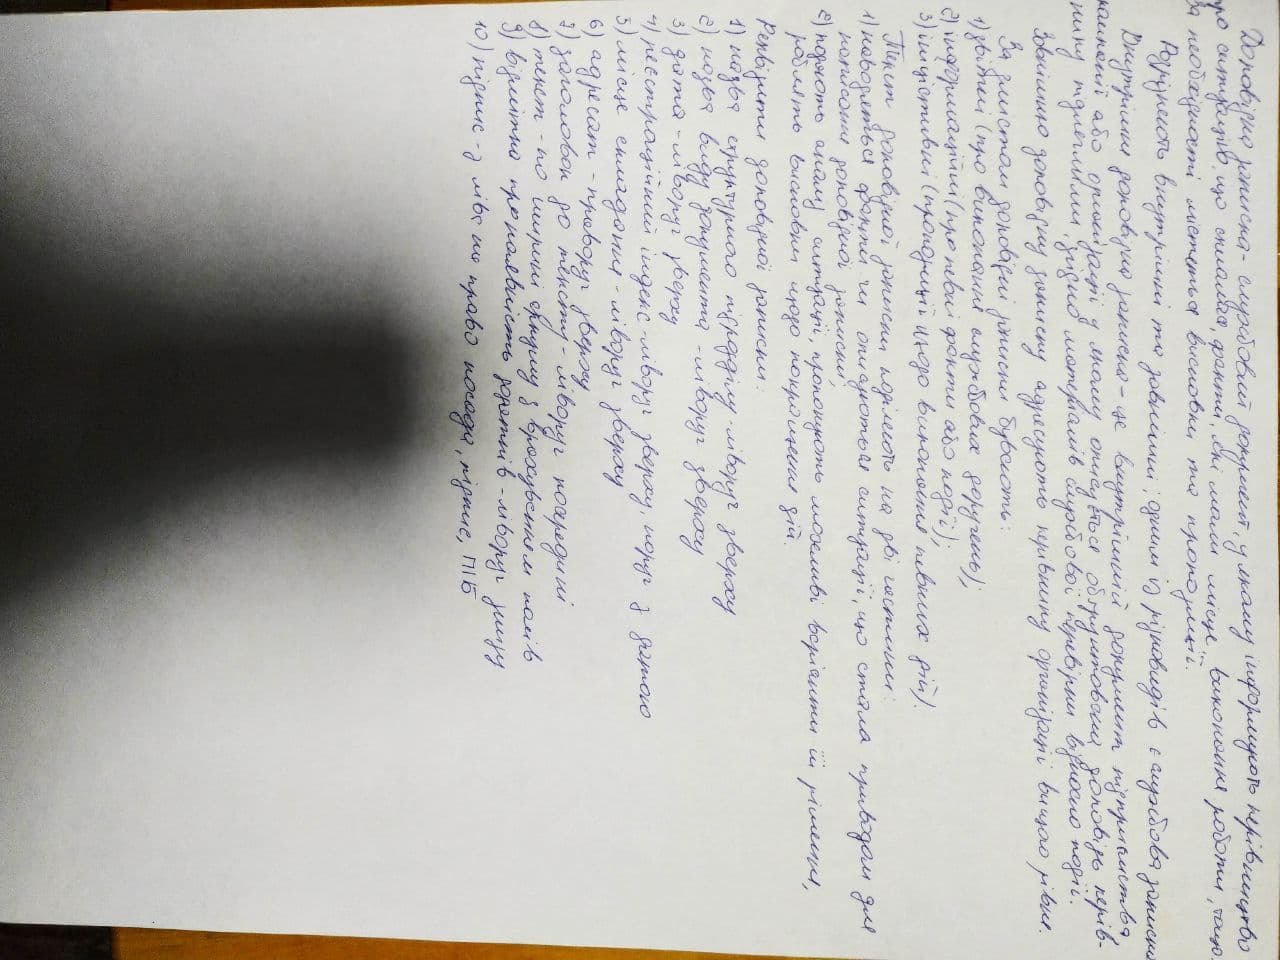 Доповідна записка - службовий документ, у якому інформують керівництво
про ситуацію, що склалася, факти, які мали місце, виконання роботи, тощо.
За необхідності містяться висновки та пропозиції.
Розрізняють внутрішні та зовнішні; одним із різновидів є службова записка
Внутрішня доповідна записка - це внутрішній документ підприємства,
компанії або організації у якому описується обґрунтована доповідь керів-
нику підлеглими, згідно матеріалів службової перевірки відносно події.
Зовнішню доповідну записку адресують керівнику організації вищого рівня.
За змістом доповідні записки бувають:
1) звітні (про виконання службових доручень);
2) інформаційні (про певні факти або події);
3) ініціативні (пропозиції щодо виконання певних дій).
Текст доповідної записки поділяють на дві частини:
1) наводяться факти чи описуються ситуації, що стала приводом для
написання доповідної записки;
2) подають аналіз ситуації, пропонують можливі варіанти її рішення,
роблять висновки щодо покращення дій.
Реквізити доповідної записки:
1) назва структурного підрозділу - ліворуч зверху
2) назва виду документа - ліворуч зверху
3) дата - ліворуч зверху
4) реєстраційний індекс - ліворуч зверху, поруч з датою
5) місце складання - ліворуч зверху
6) адресат - праворуч зверху
7) заголовок до тексту - ліворуч посередині
8) текст - по ширині аркушу з врахуванням полів
9) відмітка про наявність додатків - ліворуч знизу
10) підпис - з ліва на право посада, підпис, ПІБ